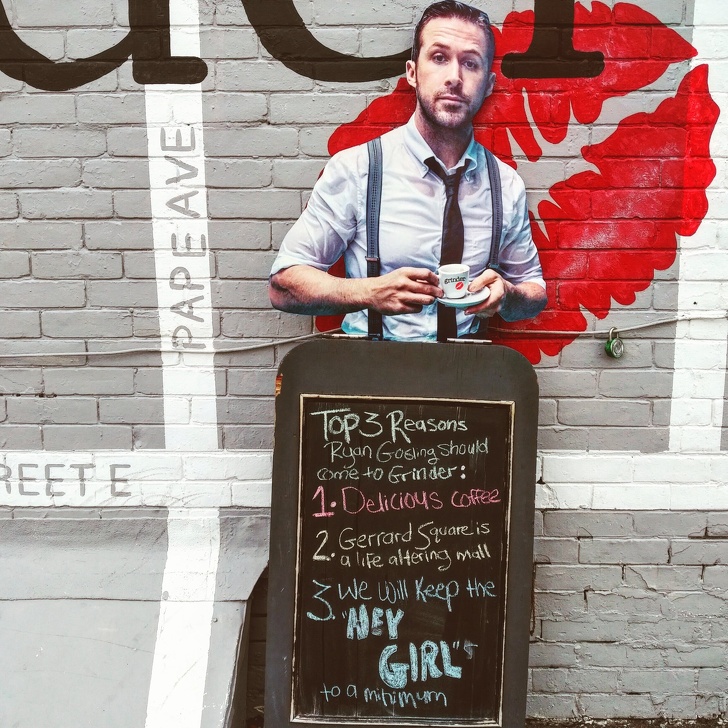 PAPE AVE
REET E
grinder
Top 3 Reasons
Ryan Gosling should
come to Grinder:
1. Delicious coffee
2. Gerrard Square is
a life altering mall
3. We will Keep the
"HEY
GIRL"s
to a minimum